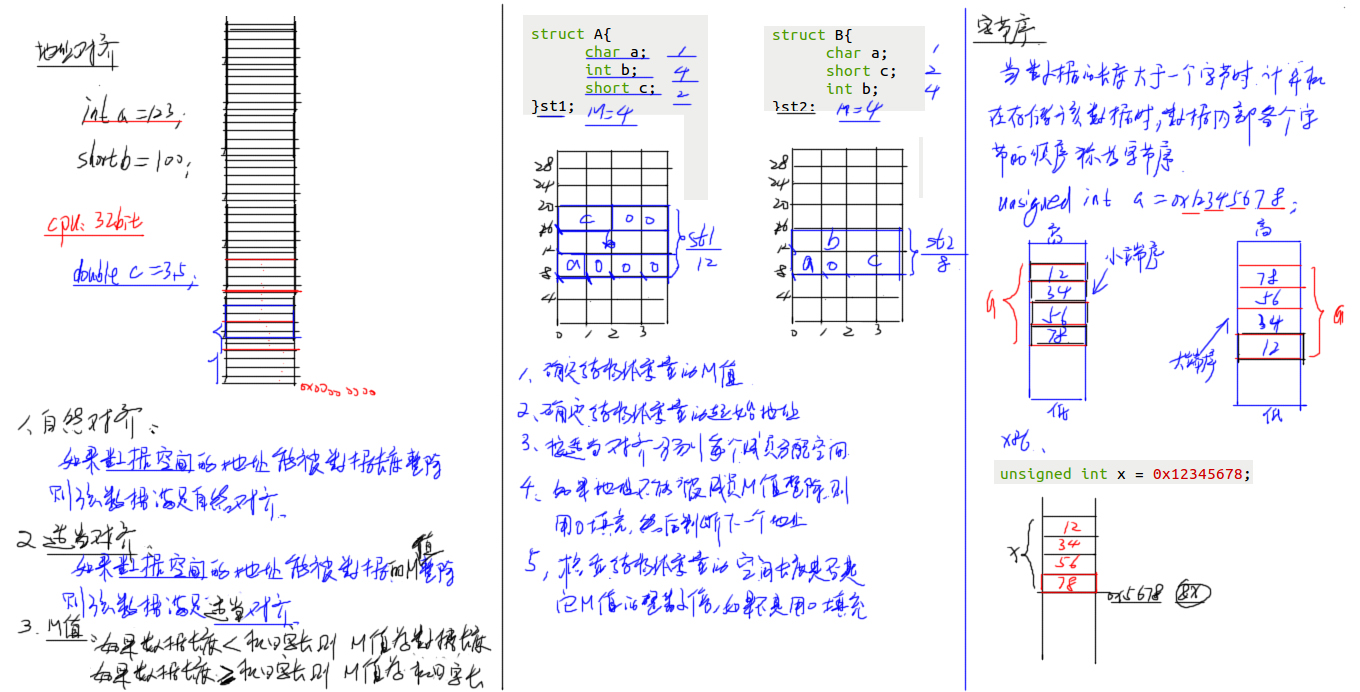 地址对齐
int a =123;
short b = 100;
cpu: 32bit
double c =3.5;
0x0000 0000
1、自然对齐:
如果数据空间的地址能被数据长度整除
则该数据满足自然对齐、
2 适当对齐、
值
如果数据空间的地址能被数据的M整除
则该数据满足适当对齐、
3. M值:
如果数据长度 < 机器字长则 M值为数据长度
如果数据长度 ≥ 机器字长则 M值为机器字长
struct A{
char a; 1
int b; 4
short c; 2
}st1; M=4
28
24
20
16
12
8
4
c 0 0
b
a 0 0 0
0 1 2 3
st1
12
struct B{
char a; 1
short c; 2
int b; 4
}st2; M=4
28
24
20
16
12
8
4
b
a 0 c
0 1 2 3
st2
8
1、确定结构体变量的M值
2、确定结构体变量的起始地址
3、按适当对齐分别为每个成员分配空间
4、如果地址不能被成员M值整除则
用0填充,然后判断下一个地址
5, 检查结构体变量的空间长度是否是
它M值的整数倍,如果不是用0填充
字节序
当数据的长度大于一个字节时,计算机
在存储该数据时,数据内部各个字
节的顺序称为字节序.
unsigned int a =0x12345678;
高
12
34
56
78
低
a
小端序
高
78
56
34
12
低
a
大端序
x86、
unsigned int x = 0x12345678;
x
12
34
56
78
0x5678